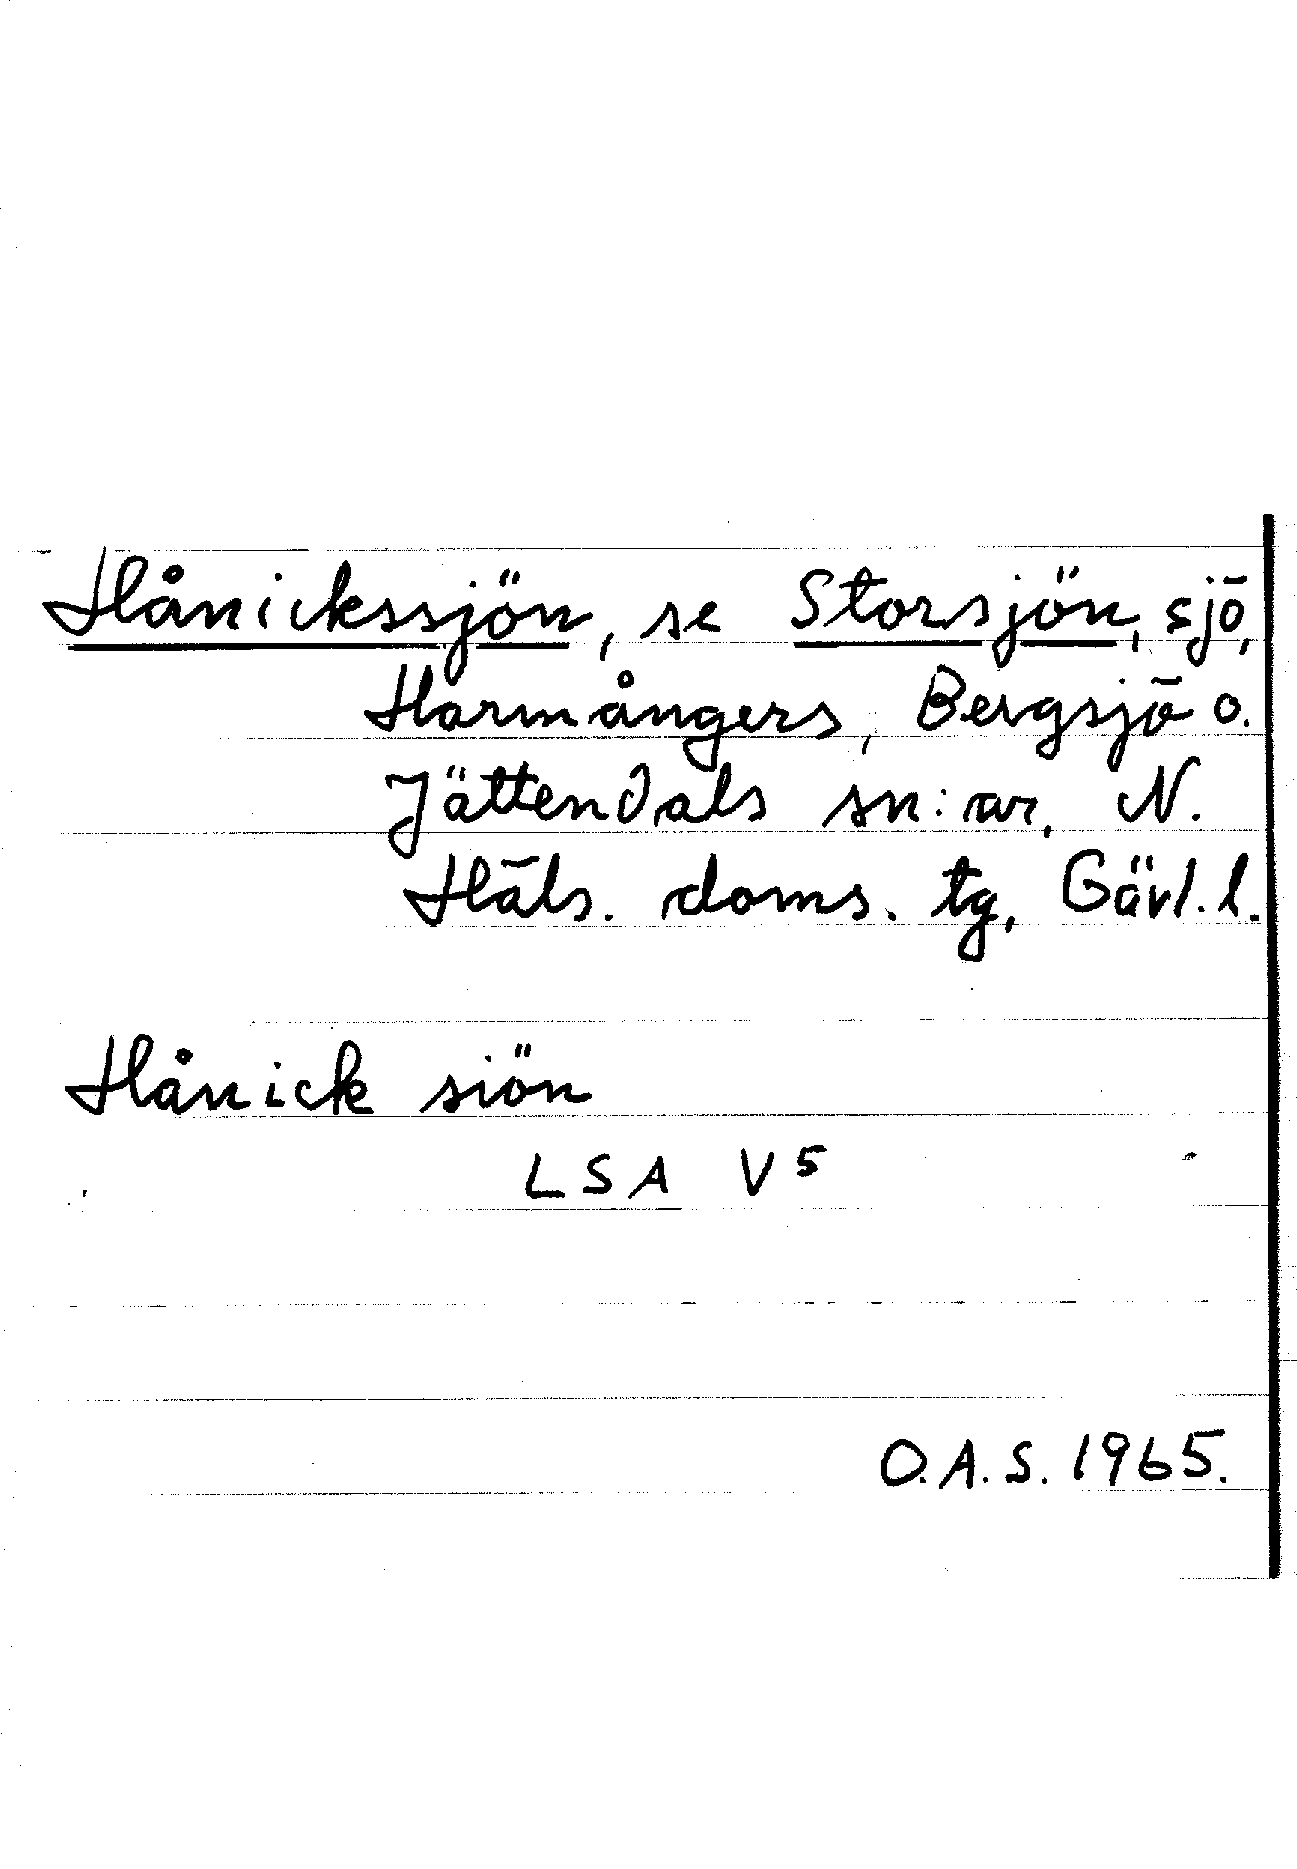 Hånickssjön, se Storsjön, sjö,
Harmångers, Bergsjö o.
Jättendals sn:ar, N.
Häls. doms. tg, Gävl. l.
Hånick siön
LSA V⁵
O.A.S. 1965.